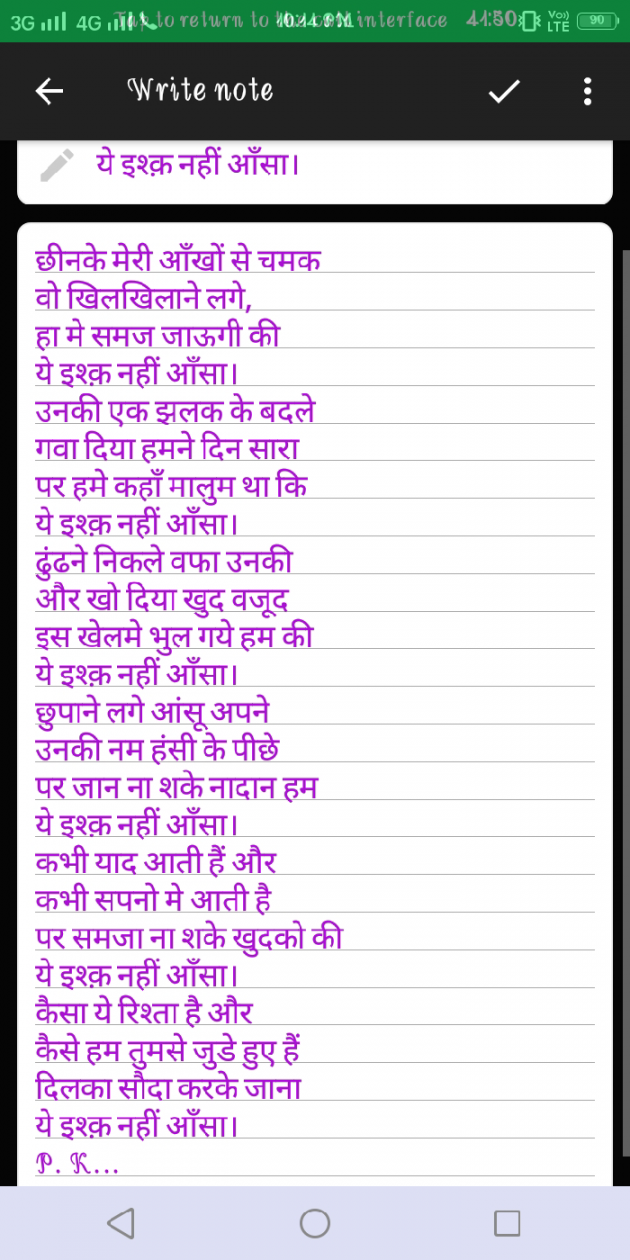 3G 4G LTE 90
Write note
ये इश्क़ नहीं आँसा।
छीनके मेरी आँखों से चमक
वो खिलखिलाने लगे,
हा मे समज जाऊगी की
ये इश्क़ नहीं आँसा।
उनकी एक झलक के बदले
गवा दिया हमने दिन सारा
पर हमे कहाँ मालुम था कि
ये इश्क़ नहीं आँसा।
ढुंढने निकले वफा उनकी
और खो दिया खुद वजूद
इस खेलमे भुल गये हम की
ये इश्क़ नहीं आँसा।
छुपाने लगे आंसू अपने
उनकी नम हंसी के पीछे
पर जान ना शके नादान हम
ये इश्क़ नहीं आँसा।
कभी याद आती हैं और
कभी सपनो मे आती है
पर समजा ना शके खुदको की
ये इश्क़ नहीं आँसा।
कैसा ये रिश्ता है और
कैसे हम तुमसे जुडे हुए हैं
दिलका सौदा करके जाना
ये इश्क़ नहीं आँसा।
P. K...